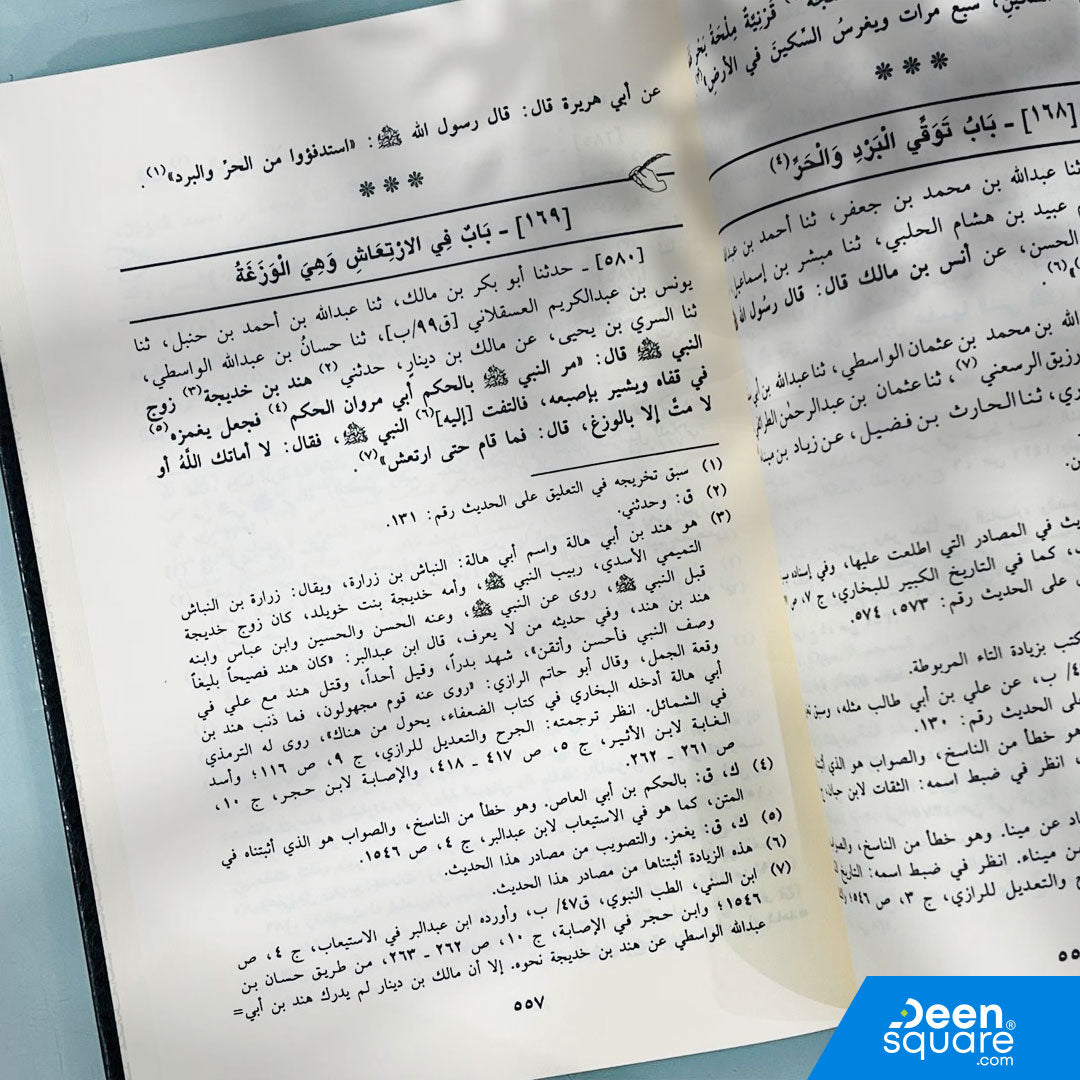 السكين، سبع مرات ويغرسُ السّكينَ في الأرضِ
***
[١٦٨] ـ بَابُ تَوَقِّي الْبَرْدِ وَالْحَرِّ(٤)
ثنا عبدالله بن محمد بن جعفر، ثنا أحمد بن
عبيد بن هشام الحلبي، ثنا مبشر بن إسماعيل
الحسن، عن أنس بن مالك قال: قال رسُول الله
(٦).
الله بن محمد بن عثمان الواسطي، ثنا عبدالله بن
رزيق الرسعني (٧)، ثنا عثمان بن عبدالرحمٰن
ثنا الحارث بن فضيل، عن زياد بن
في المصادر التي اطلعت عليها، وفي
كما في التاريخ الكبير للبخاري، ج ٧، ص
على الحديث رقم: ٥٧٣، ٥٧٤.
بزيادة التاء المربوطة.
ب، عن علي بن أبي طالب مثله،
على الحديث رقم: ١٣٠.
هو خطأ من الناسخ، والصواب هو الذي
انظر في ضبط اسمه: الثقات لابن
عن مينا. وهو خطأ من الناسخ،
ميناء. انظر في ضبط اسمه:
والتعديل للرازي، ج ٣، ص
عن أبي هريرة قال: قال رسول الله ﷺ: «استدفؤوا من الحرْ والبرد»(١).
***
[١٦٩] ـ بَابٌ فِي الارْتِعَاشِ وَهِيَ الْوَزَغَةُ
[٥٨٠] ـ حدثنا أبو بكر بن مالك، ثنا عبدالله بن أحمد بن حنبل، ثنا
يونس بن عبدالكريم العسقلاني [ق٩٩/ب]، ثنا حسانُ بن عبدالله الواسطي،
ثنا السري بن يحيى، عن مالك بن دينارٍ، حدثني (٢) هند بن خديجة(٣) زوج
النبي ﷺ قال: «مر النبي ﷺ بالحكم أبي مروان الحكم(٤) فجعل يغمزه(٥)
في قفاه ويشير بإصبعه، فالتفت [إليه](٦) النبي ﷺ، فقال: لا أماتك اللَّهُ أو
لا متَّ إلا بالوزغ، قال: فما قام حتى ارتعش»(٧).
(١) سبق تخريجه في التعليق على الحديث رقم: ١٣١.
(٢) ق: وحدثني.
(٣) هو هند بن أبي هالة واسم أبي هالة: النباش بن زرارة، ويقال: زرارة بن النباش
التميمي الأسدي، ربيب النبي ﷺ، وأمه خديجة بنت خويلد، كان زوج خديجة
قبل النبي ﷺ، روى عن النبي ﷺ، وعنه الحسن والحسين وابن عباس وابنه
هند بن هند، وفي حديثه من لا يعرف، قال ابن عبدالبر: «كان هند فصيحاً بليغاً
وصف النبي فأحسن وأتقن»، شهد بدراً، وقيل أحداً، وقتل هند مع علي في
وقعة الجمل، وقال أبو حاتم الرازي: «روى عنه قوم مجهولون، فما ذنب هند بن
أبي هالة أدخله البخاري في كتاب الضعفاء، يحول من هناك»، روى له الترمذي
في الشمائل. انظر ترجمته: الجرح والتعديل للرازي، ج ٩، ص ١١٦؛ وأسد
الغابة لابن الأثير، ج ٥، ص ٤١٧ ـ ٤١٨، والإصابة لابن حجر، ج ١٠،
ص ٢٦١ ـ ٢٦٢.
(٤) ك، ق: بالحكم بن أبي العاص. وهو خطأ من الناسخ، والصواب هو الذي أثبتناه في
المتن، كما هو في الاستيعاب لابن عبدالبر، ج ٤، ص ١٥٤٦.
(٥) ك، ق: يغمز. والتصويب من مصادر هذا الحديث.
(٦) هذه الزيادة أثبتناها من مصادر هذا الحديث.
(٧) ابن السني، الطب النبوي، ق٤٧/ ب، وأورده ابن عبدالبر في الاستيعاب، ج ٤، ص
١٥٤٦؛ وابن حجر في الإصابة، ج ١٠، ص ٢٦٢ ـ ٢٦٣، من طريق حسان بن
عبدالله الواسطي عن هند بن خديجة نحوه. إلا أن مالك بن دينار لم يدرك هند بن أبي=
٥٥٧
Deen
square®
.com